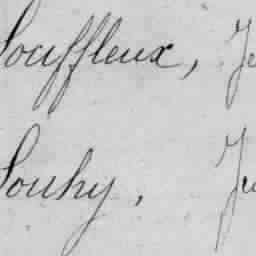 Souffleux, Je
Souhy, Ju